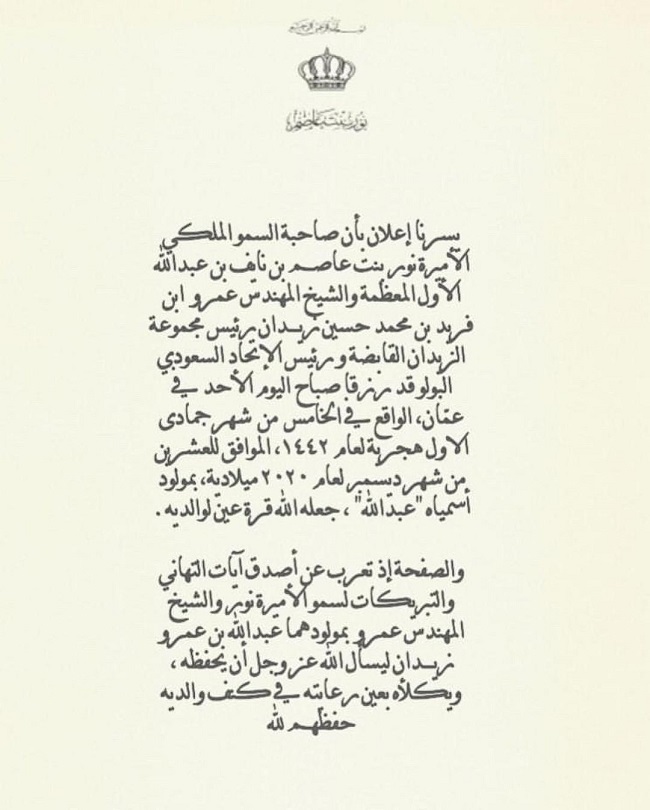 بسم الله الرحمن الرحيم
نور بنت عاصم
يسرنا إعلان بأن صاحبة السمو الملكي
الأميرة نور بنت عاصم بن نايف بن عبدالله
الأول المعظمة والشيخ المهندس عمرو ابن
فريد بن محمد حسين زيدان رئيس مجموعة
الزيدان القابضة ورئيس الإتحاد السعودي
البولو قد رزقا صباح اليوم الأحد في
عمّان، الواقع في الخامس من شهر جمادى
الاول هجرية لعام ١٤٤٢، الموافق للعشرين
من شهر ديسمبر لعام ٢٠٢٠ ميلادية، بمولود
أسمياه "عبدالله" ، جعله الله قرة عين لوالديه .
والصفحة إذ تعرب عن أصدق آيات التهاني
والتبريكات لسمو الأميرة نور والشيخ
المهندس عمرو بمولودهما عبدالله بن عمرو
زيدان ليسأل الله عز وجل أن يحفظه ،
ويكلأه بعين رعايته في كنف والديه
حفظهم لله